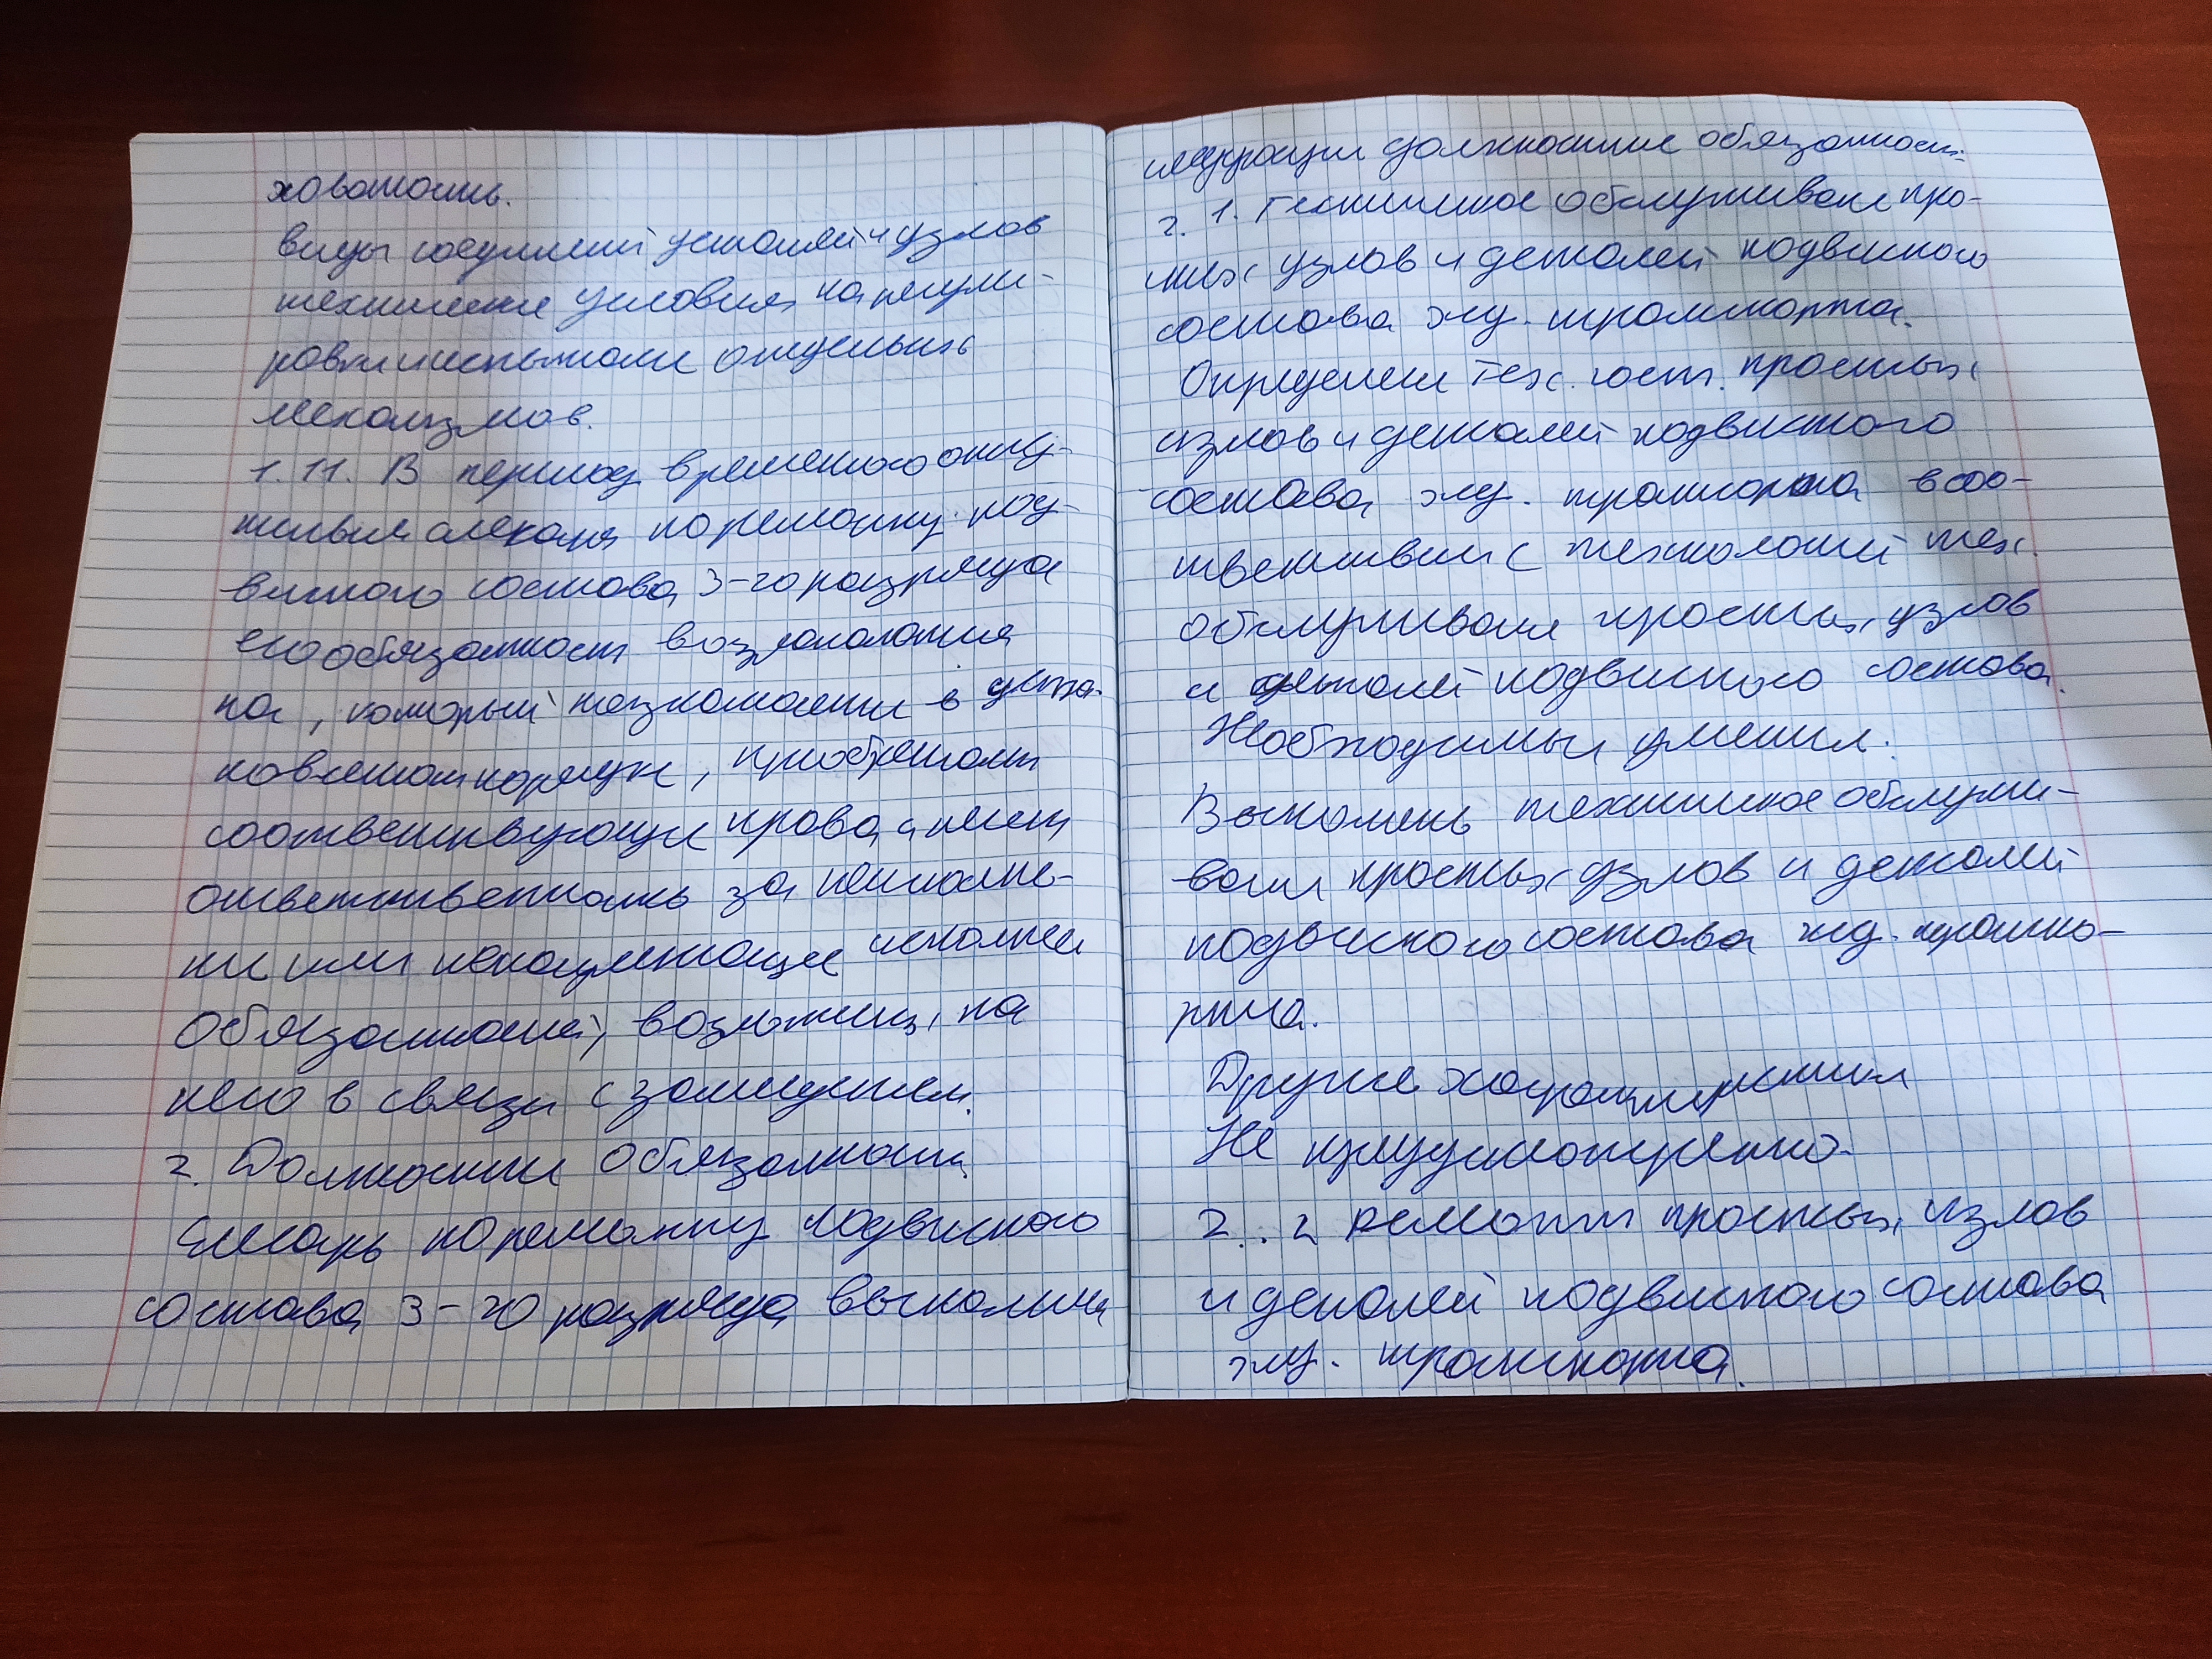 ховатость.
виды соединений деталей и узлов
технические условия на регули-
ровки и испытание отдельных
механизмов.
1.11. В период временного отсу-
ствия слесаря по ремонту под-
вижного состава 3-го разряда
его обязанности возлагаются
на, который назначается в уста-
новленном порядке, приобретает
соответствующие права и несет
ответственность за неисполне-
ние или ненадлежащее исполнение
обязанностей, возложенных на
него в связи с замещением.
2. Должностные обязанности
Слесарь по ремонту подвижного
состава 3-го разряда выполняет
следующие должностные обязанности:
2.1. Техническое обслуживание про-
стых узлов и деталей подвижного
состава жд. транспорта.
Определение тех. сост. простых
узлов и деталей подвижного
состава жд. транспорта в соо-
тветствии с технологией тех.
обслуживания простых узлов
и деталей подвижного состава.
Необходимые умения.
Выполнять техническое обслужи-
вание простых узлов и деталей
подвижного состава жд. транспо-
рта.
Другие характеристики
Не предусмотрено.
2..2 ремонт простых узлов
и деталей подвижного состава
жд. транспорта.